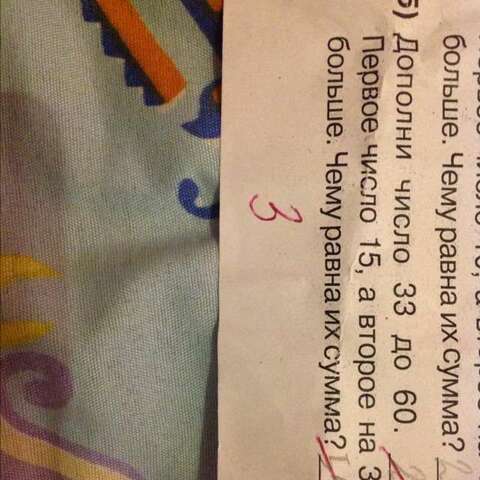 больше. Чему равна их сумма? 2
5) Дополни число 33 до 60.
Первое число 15, а второе на 3
больше. Чему равна их сумма?
3